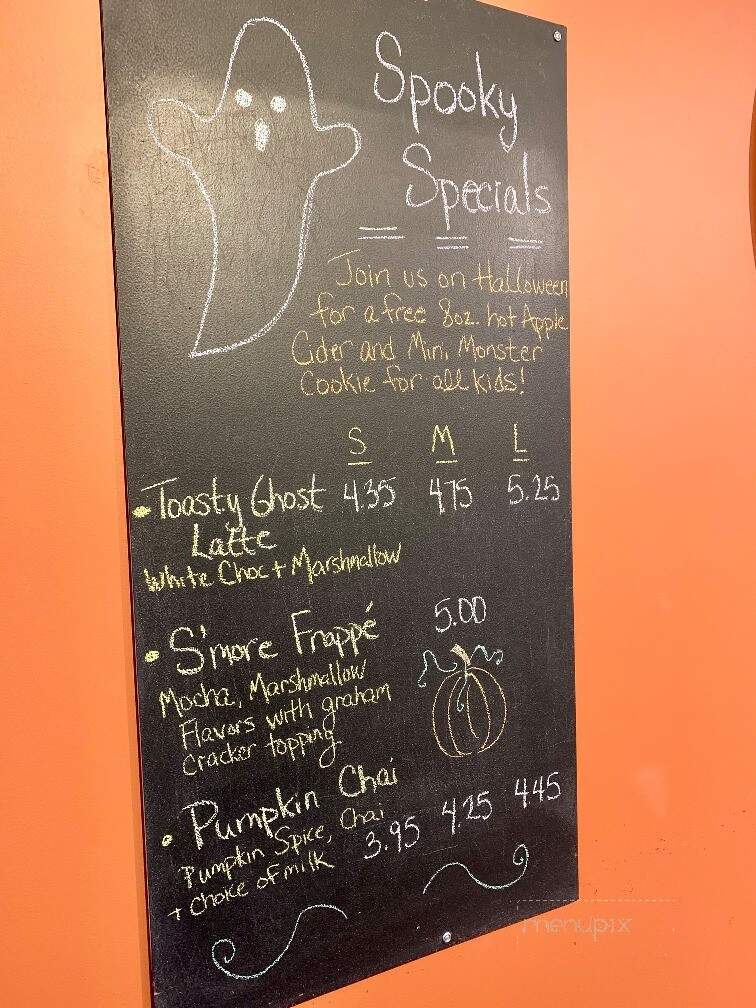 Spooky
Specials
Join us on Halloween
for a free 8oz. hot Apple
Cider and Mini Monster
Cookie for all kids!
S M L
• Toasty Ghost 4.35 4.75 5.25
Latte
White Choc + Marshmallow
• S'more Frappé 5.00
Mocha, Marshmallow
Flavors with graham
Cracker topping
• Pumpkin Chai 3.95 4.25 4.45
Pumpkin Spice, Chai
+ Choice of milk
menupix